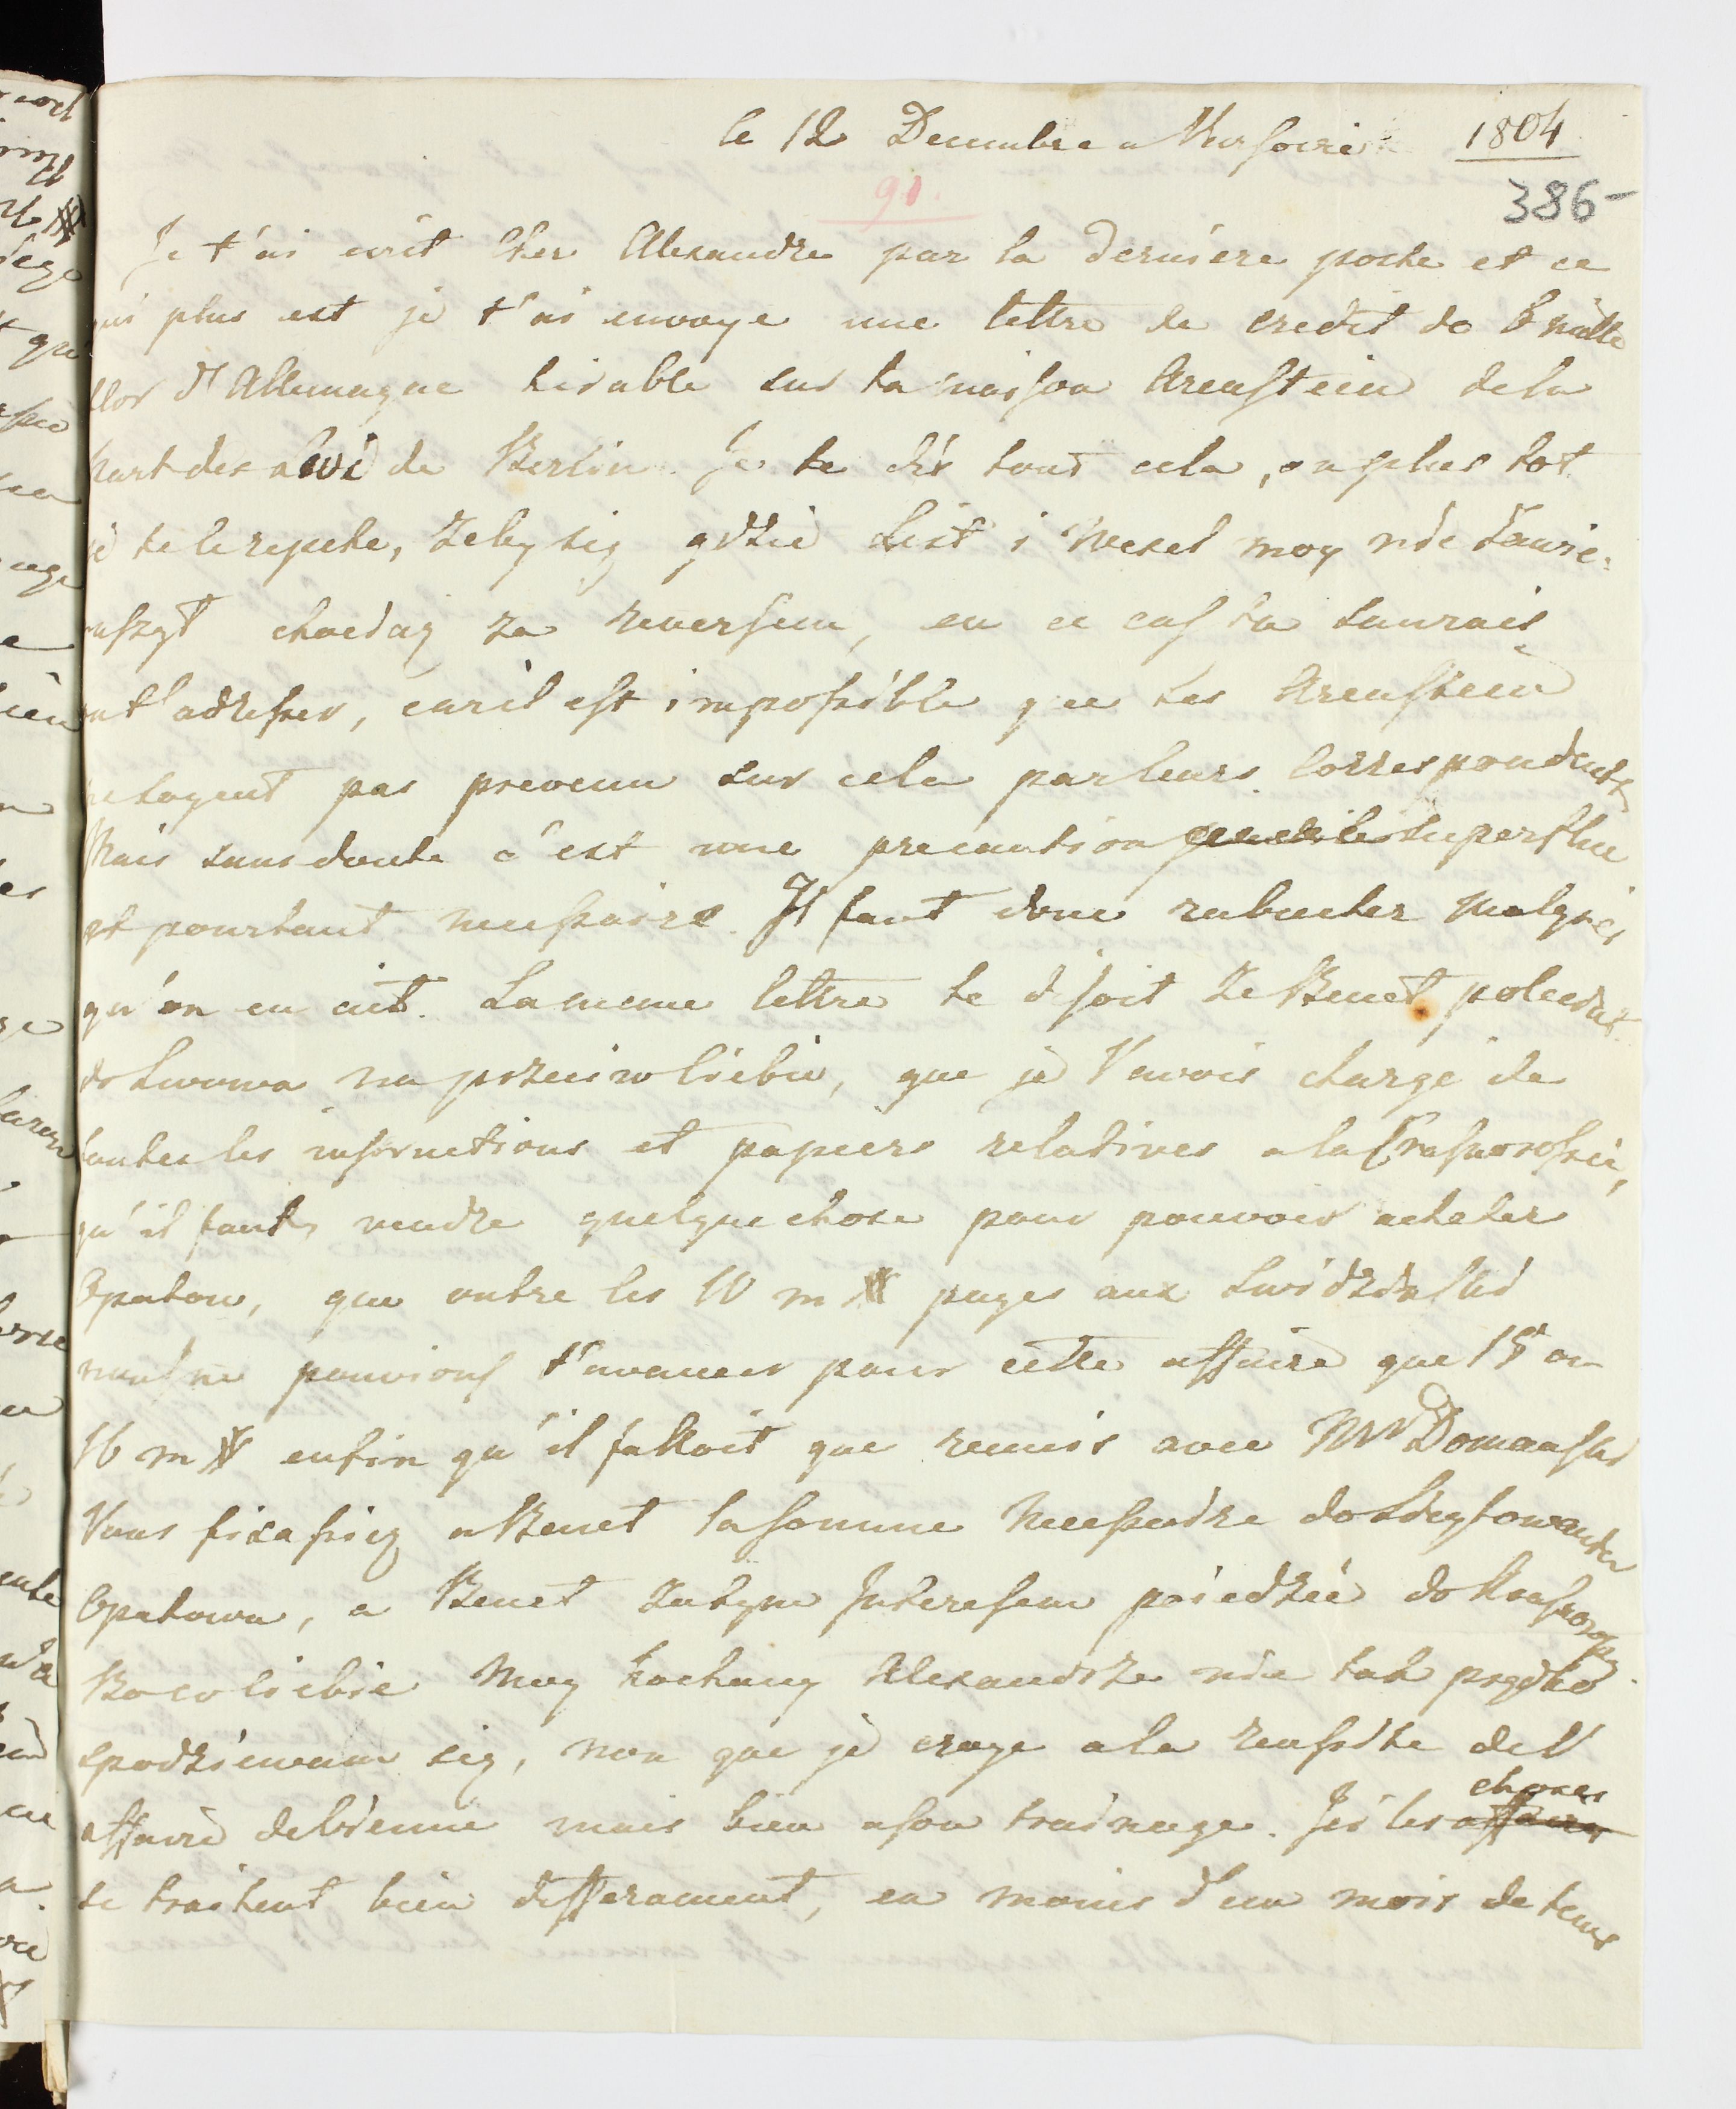 le 12 Decembre a Varsovie 1804
386-
91.
Je t'ai ecrit Cher Alexandre par la derniere poste et ce
qui plus est je t'ai envoye une lettre de credit de 6 mille
flor d'Allemagne tirable sur la maison Arenstein de la
part des Levi de Berlin. Je te dis tout cela, ou plus tot
je te le repete, zeby się gdzie List i Wexel moy nie zawie-
ruszył chodaz za rewersem, en ce cas tu saurais
ou t'adresser, car il est impossible que les Arenstein
ne soyent pas prevenu sur cela par leurs Correspondents
Mais sans doute c'est une precaution superflue
et pourtant necessaire. Il faut donc rabacher malgrés
qu'on en ait. La meme lettre te disoit ze Benet poleciał
do Lwowa na przeciw Ciebie, que je l'avois chargé de
toutes les instructions et papiers relatives a la Krasnorossie,
qu'il faut vendre quelque chose pour pouvoir acheter
Opatow, que outre les 10 m # payes aux Swidzinski
nous ne pouvions t'avancer pour cette affaire que 15 ou
16 m # enfin qu'il falloit que reunis avec Mr Domanski
Vous fixassiez a Benet la somme necessaire do zlicytowania
Opatowa, a Benet zatym Interesem poiedzie do
Bo co Ciebie moy kochany Alexandrze nie tak prędko
spodziewam się, non que je croye a la reussite de l'
affaire de Vienne mais bien a son trainage. Ici les affaires choses
se traitent bien differament, en moins d'un mois de tems